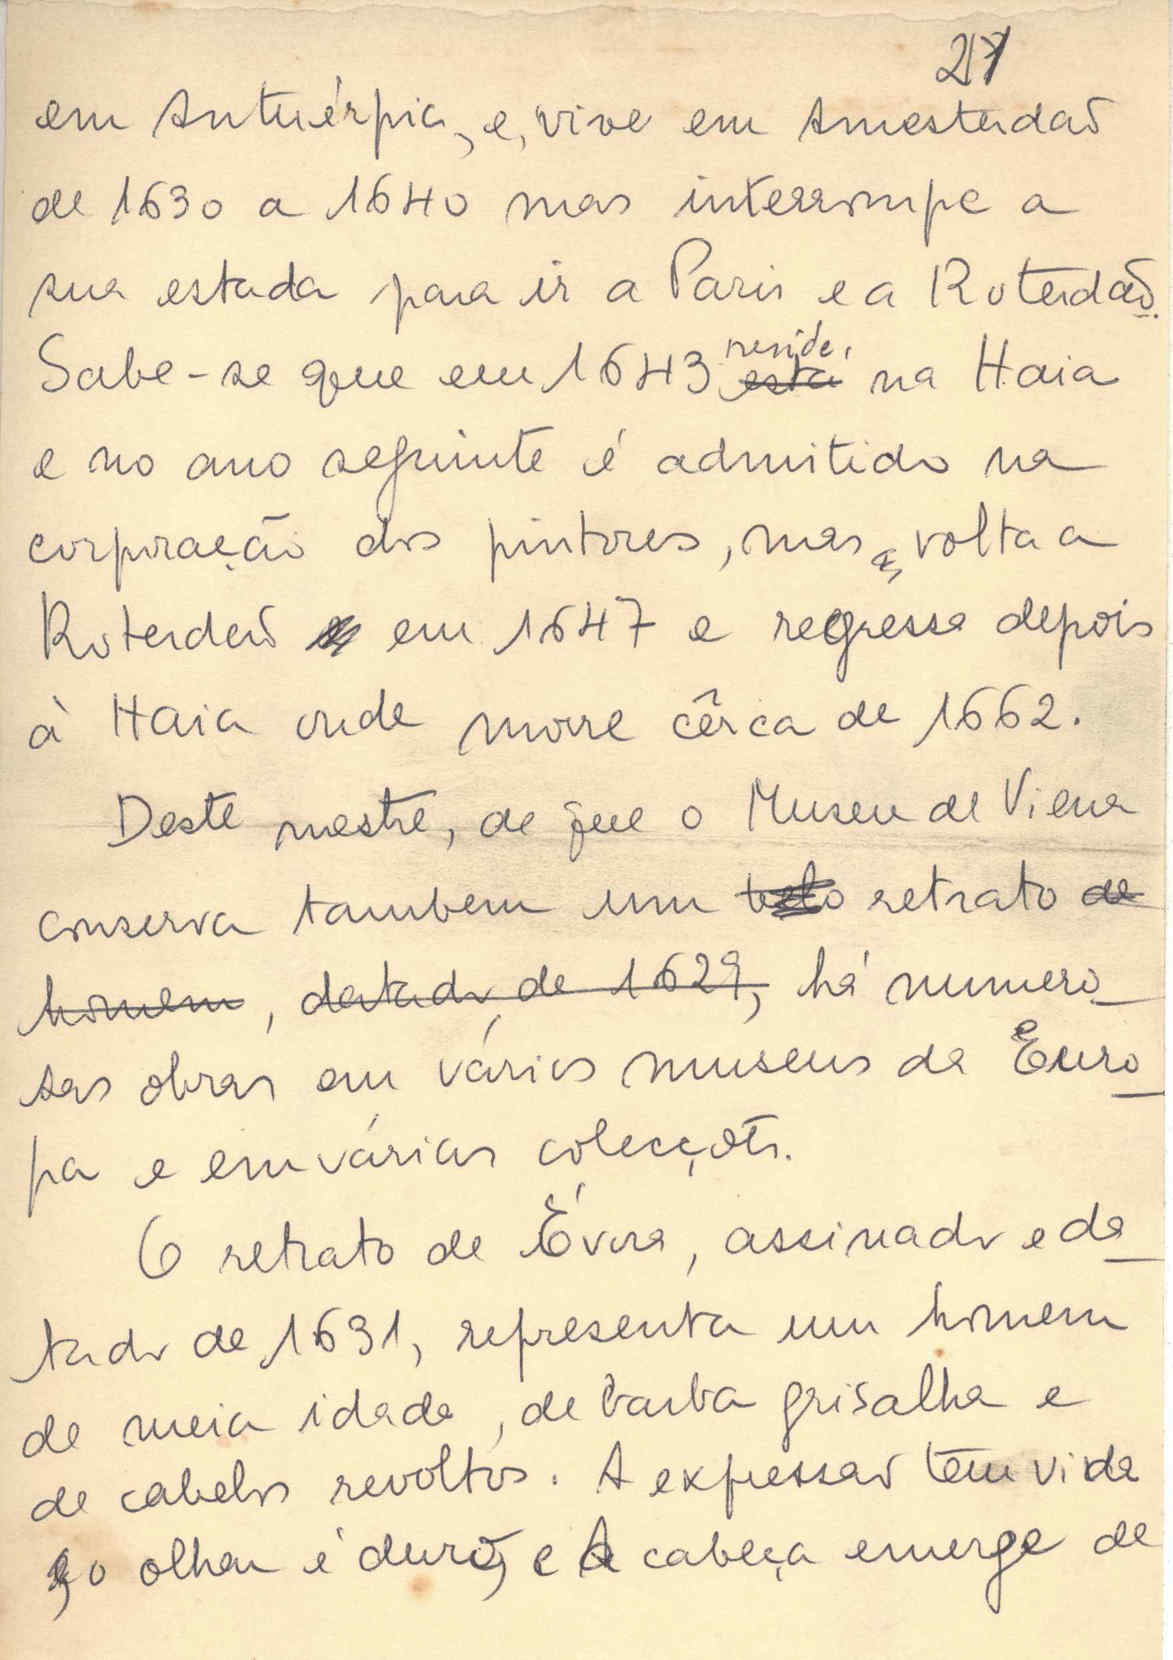 27
em Antuérpia, e, vive em Amesterdão
de 1630 a 1640 mas interrompe a
sua estada para ir a Paris e a Roterdão.
Sabe-se que em 1643 reside, está na Haia
e no ano seguinte é admitido na
corporação dos pintores, mas, volta a
Roterdão em 1647 e regressa depois
à Haia onde morre cêrca de 1662.
Deste mestre, de que o Museu de Viena
conserva tambem um belo retrato de
homem, datado de 1629, há numero_
sas obras em vários museus da Euro_
pa e em várias colecções.
O retrato de Évora, assinado e da_
tado de 1631, representa um homem
de meia idade, de barba grisalha e
de cabelos revoltos. A expressão tem vida
, o olhar é duro, e a cabeça emerge de